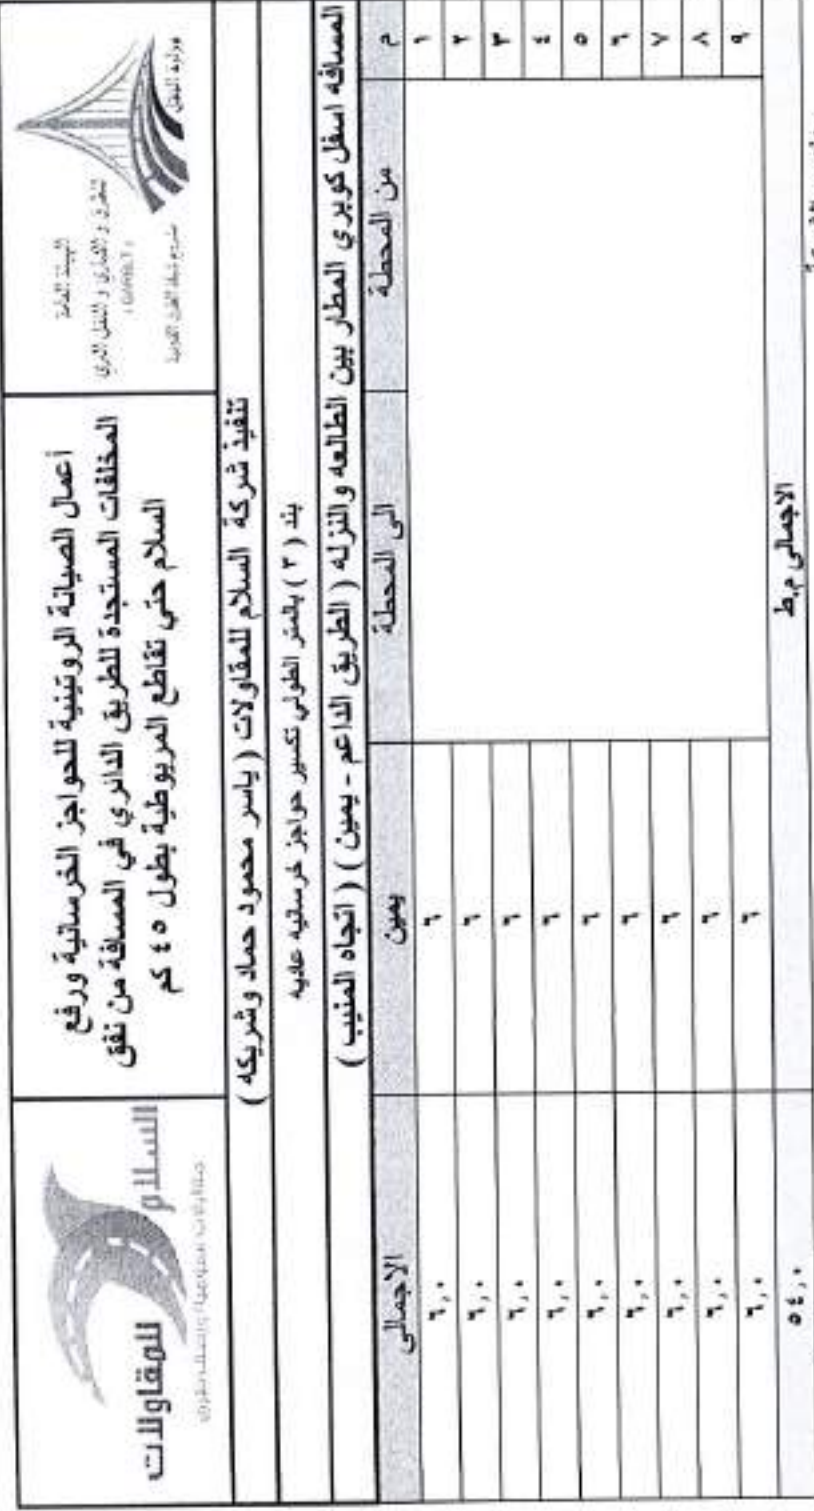 وزارة النقل
الهيئة العامة
للطرق و الكباري و النقل البري
( GARBLT )
أعمال الصيانة الروتينية للحواجز الخرسانية ورفع
المخلفات المستجدة للطريق الدائري في المسافة من نفق
السلام حتي تقاطع المريوطية بطول ٤٥ كم
السلام
للمقاولات
تنفيذ شركة السلام للمقاولات ( ياسر محمود حماد وشريكه )
بند ( ٣ ) بالمتر الطولي تكسير حواجز خرسانيه عاديه
المسافه اسفل كوبري المطار بين الطالعه والنزله ( الطريق الداعم - يمين ) ( اتجاه المنيب )
م من المحطة الى المحطة يمين الاجمالى
١ ٦ ٦,٠
٢ ٦ ٦,٠
٣ ٦ ٦,٠
٤ ٦ ٦,٠
٥ ٦ ٦,٠
٦ ٦ ٦,٠
٧ ٦ ٦,٠
٨ ٦ ٦,٠
٩ ٦ ٦,٠
الاجمالى م.ط ٥٤,٠